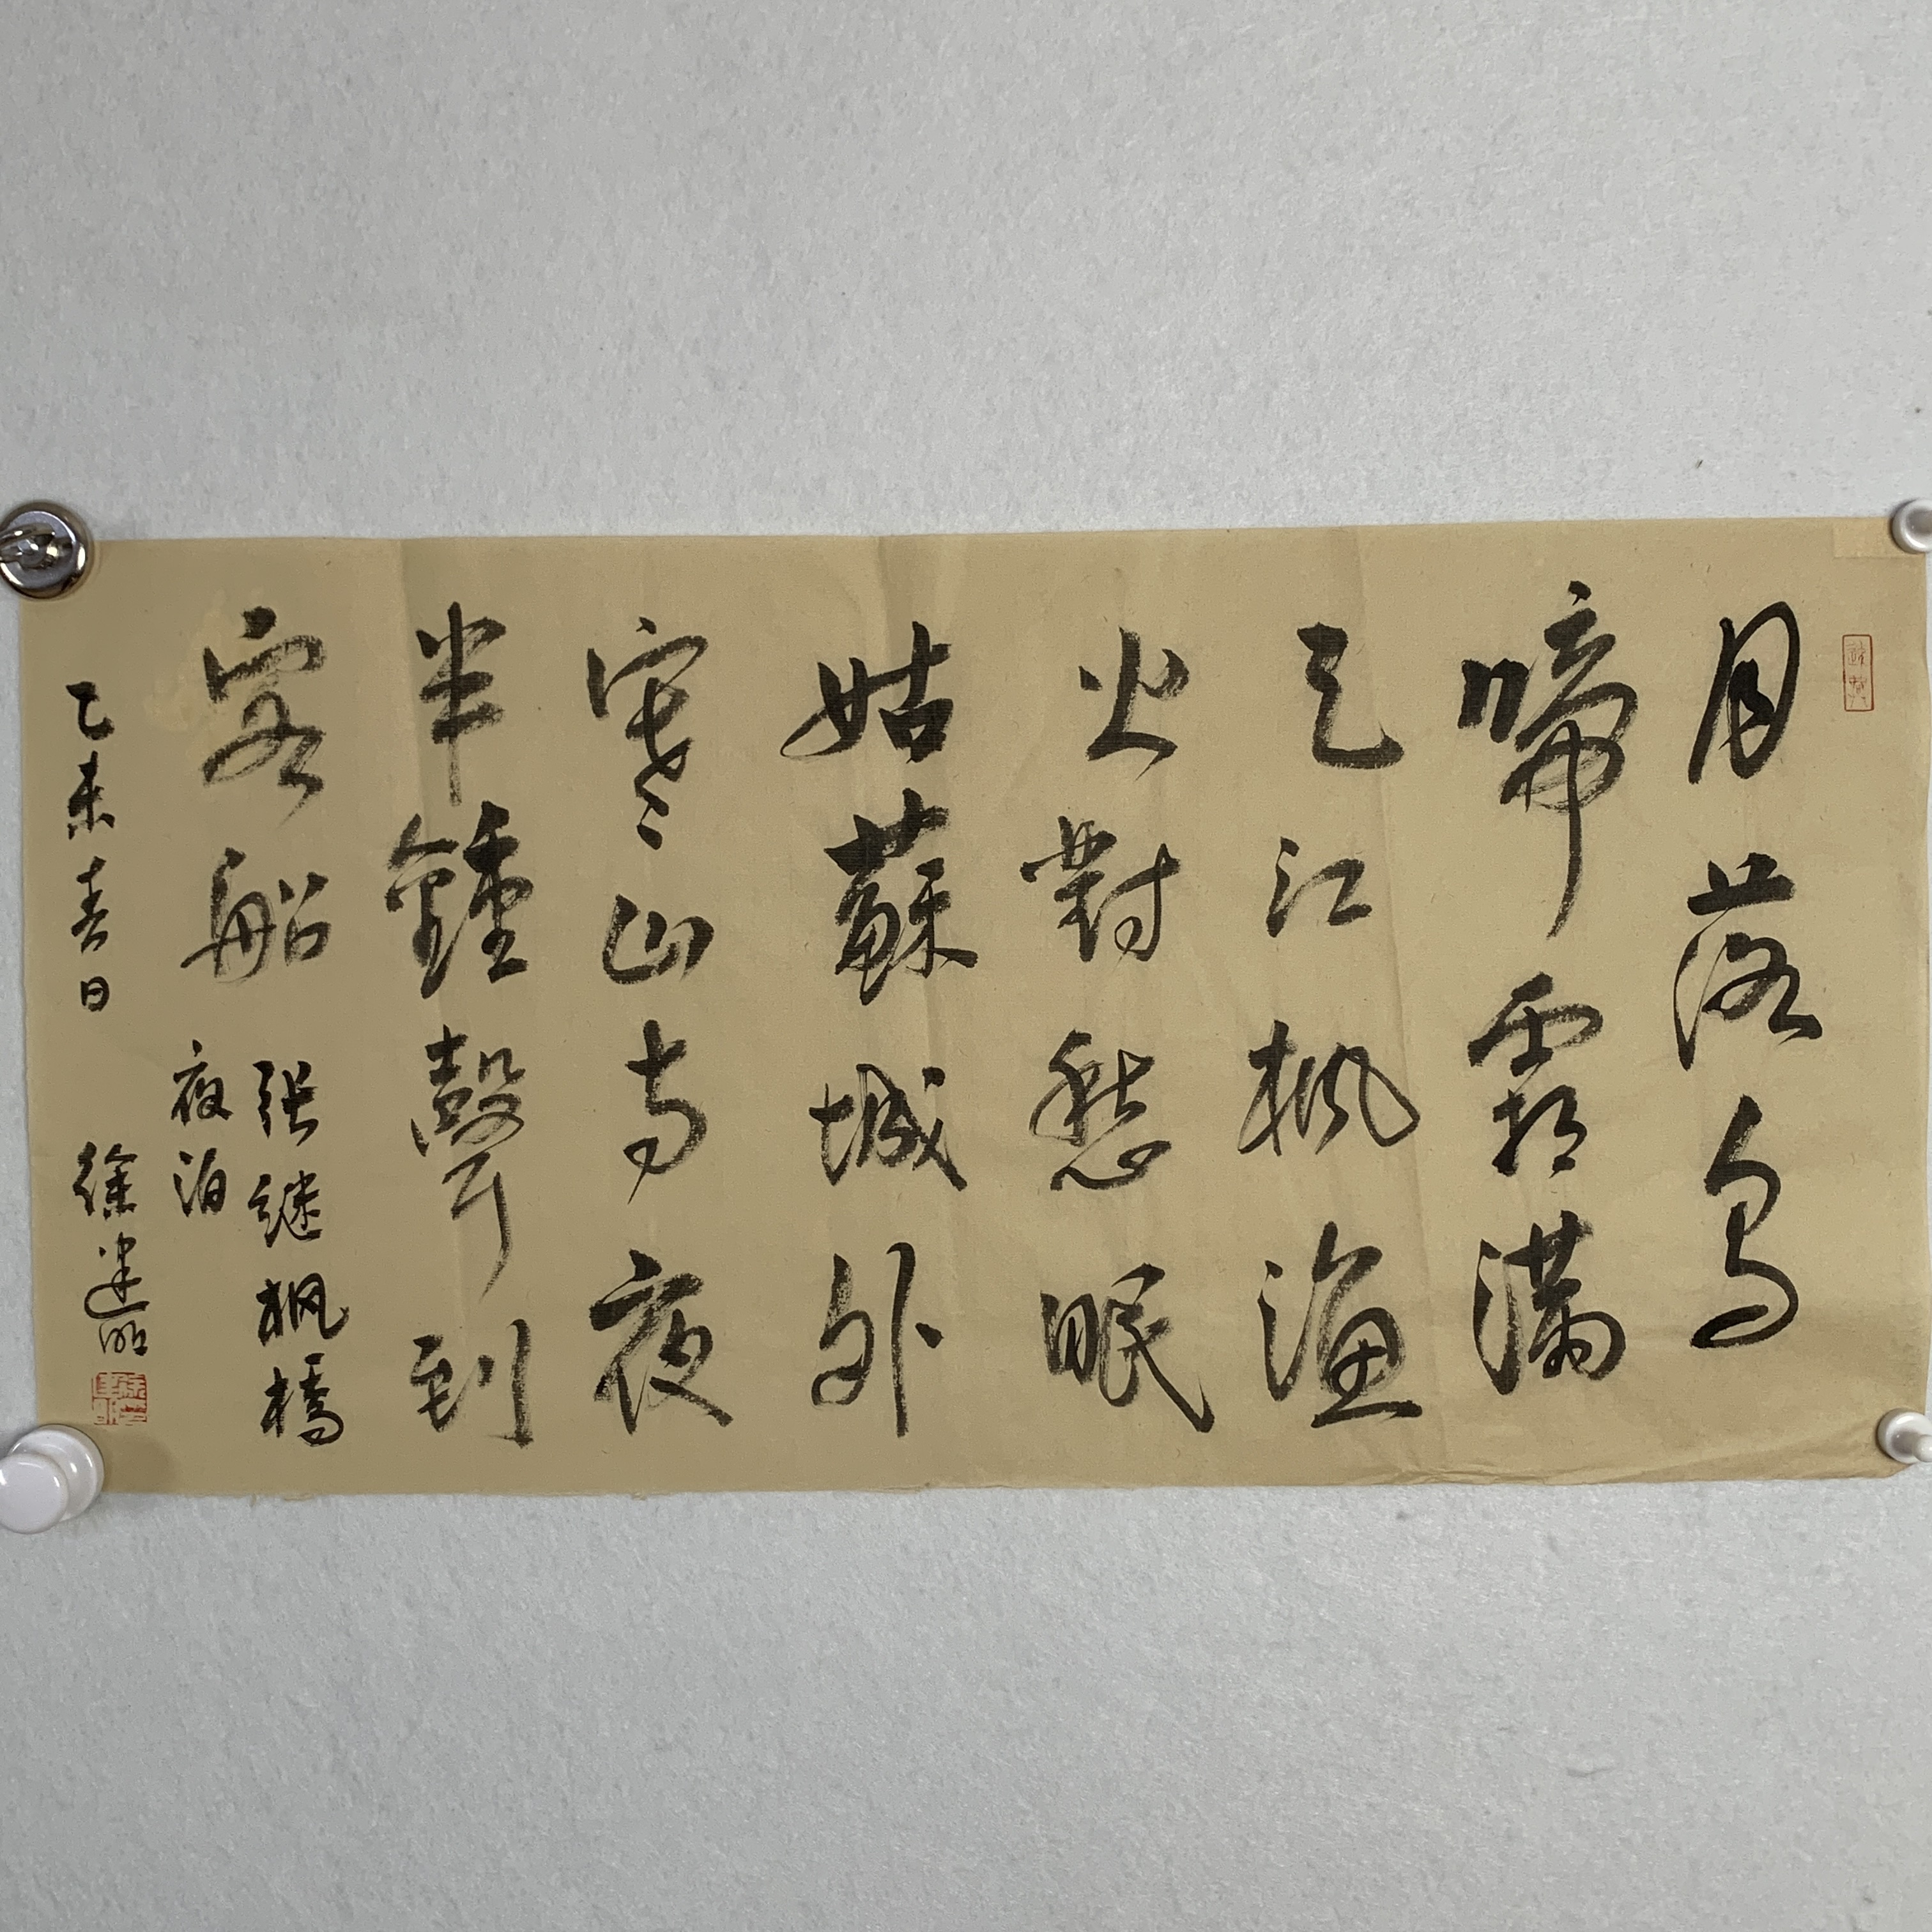 月落烏
啼霜滿
天江枫渔
火對愁眠
姑蘇城外
寒山寺夜
半鍾聲到
客船
张继枫橋
夜泊
乙未春日
徐建明